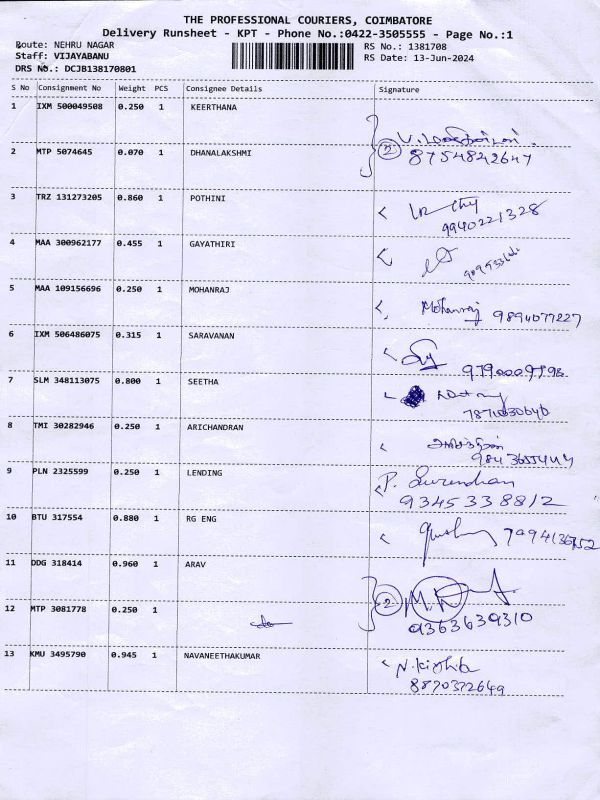 THE PROFESSIONAL COURIERS, COIMBATORE
Delivery Runsheet - KPT - Phone No.:0422-3505555 - Page No.:1
Route: NEHRU NAGAR
RS No.: 1381708
Staff: VIJAYABANU
RS Date: 13-Jun-2024
DRS No.: DCJB138170801
S No Consignment No Weight PCS Consignee Details Signature
1 IXM 500049508 0.250 1 KEERTHANA
2 MTP 5074645 0.070 1 DHANALAKSHMI
2 8754842647
3 TRZ 131273205 0.860 1 POTHINI
9940221328
4 MAA 300962177 0.455 1 GAYATHIRI
5 MAA 109156696 0.250 1 MOHANRAJ
Mohanraj 9894077227
6 IXM 506486075 0.315 1 SARAVANAN
7 SLM 348113075 0.800 1 SEETHA
8 TMI 30282946 0.250 1 ARICHANDRAN
9 PLN 2325599 0.250 1 LENDING
P. Surendran
9345338812
10 BTU 317554 0.880 1 RG ENG
11 DDG 318414 0.960 1 ARAV
2
12 MTP 3081778 0.250 1
9363639310
13 KMU 3495790 0.945 1 NAVANEETHAKUMAR
8870372649